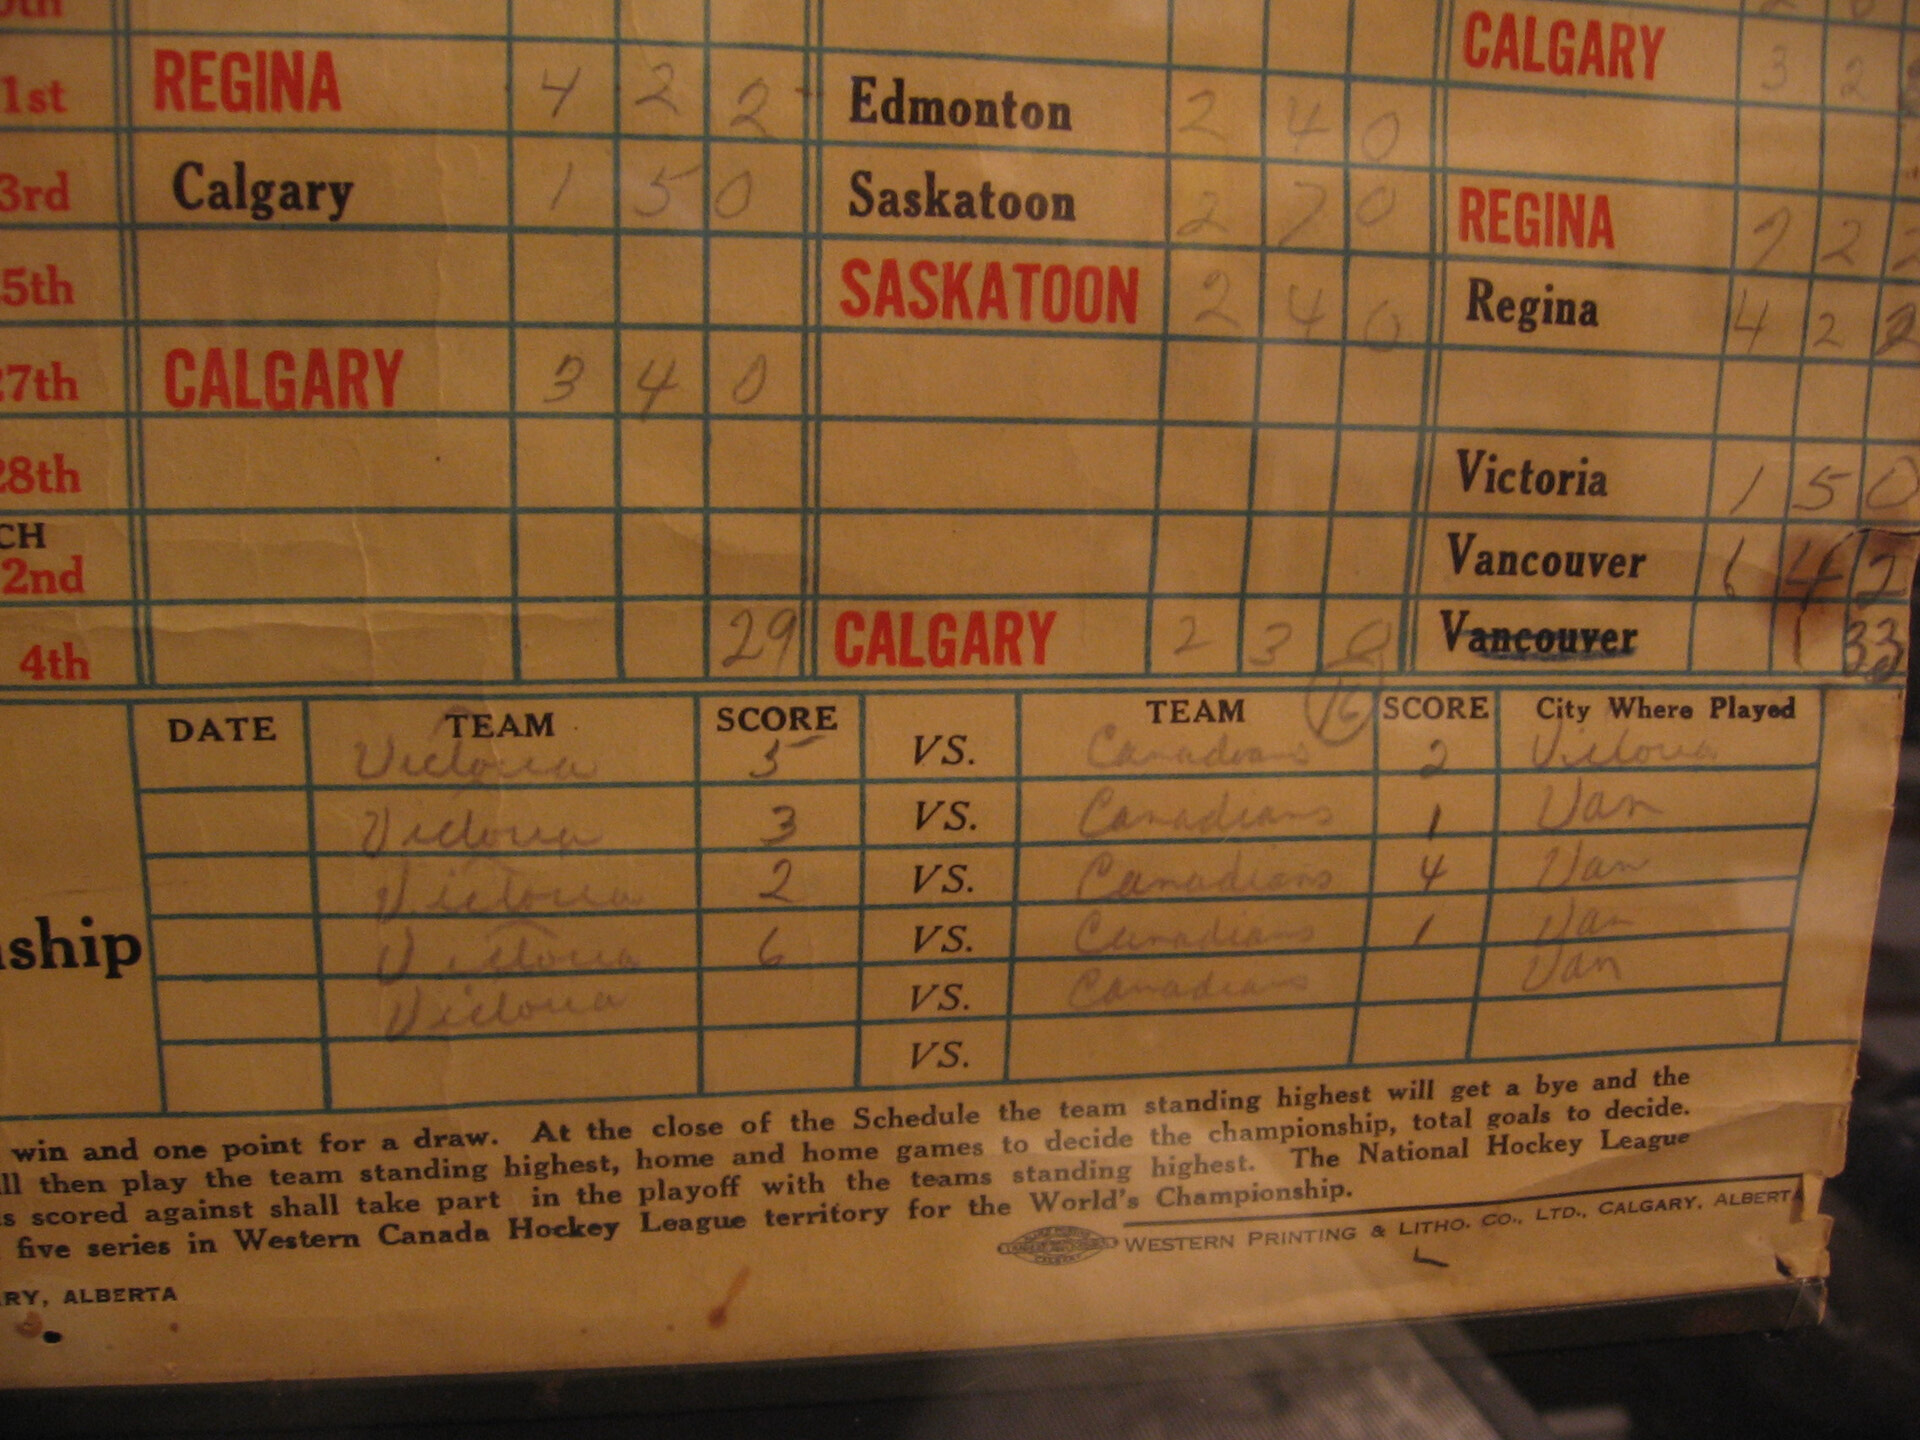 CALGARY 3 2
1st REGINA 4 2 2 Edmonton 2 4 0
3rd Calgary 1 5 0 Saskatoon 2 7 0 REGINA 7 2 2
5th SASKATOON 2 4 0 Regina 4 2 2
27th CALGARY 3 4 0
28th Victoria 1 5 0
CH
2nd Vancouver 1 4 2
4th 29 CALGARY 2 3 0 Vancouver 33
16
DATE TEAM SCORE TEAM SCORE City Where Played
Victoria 5 VS. Canadians 2 Victoria
Victoria 3 VS. Canadians 1 Van
Victoria 2 VS. Canadians 4 Van
Victoria 6 VS. Canadians 1 Van
Victoria VS. Canadians Van
VS.
ship
win and one point for a draw. At the close of the Schedule the team standing highest will get a bye and the
ll then play the team standing highest, home and home games to decide the championship, total goals to decide.
s scored against shall take part in the playoff with the teams standing highest. The National Hockey League
five series in Western Canada Hockey League territory for the World's Championship.
WESTERN PRINTING & LITHO. CO., LTD., CALGARY, ALBERTA
RY, ALBERTA